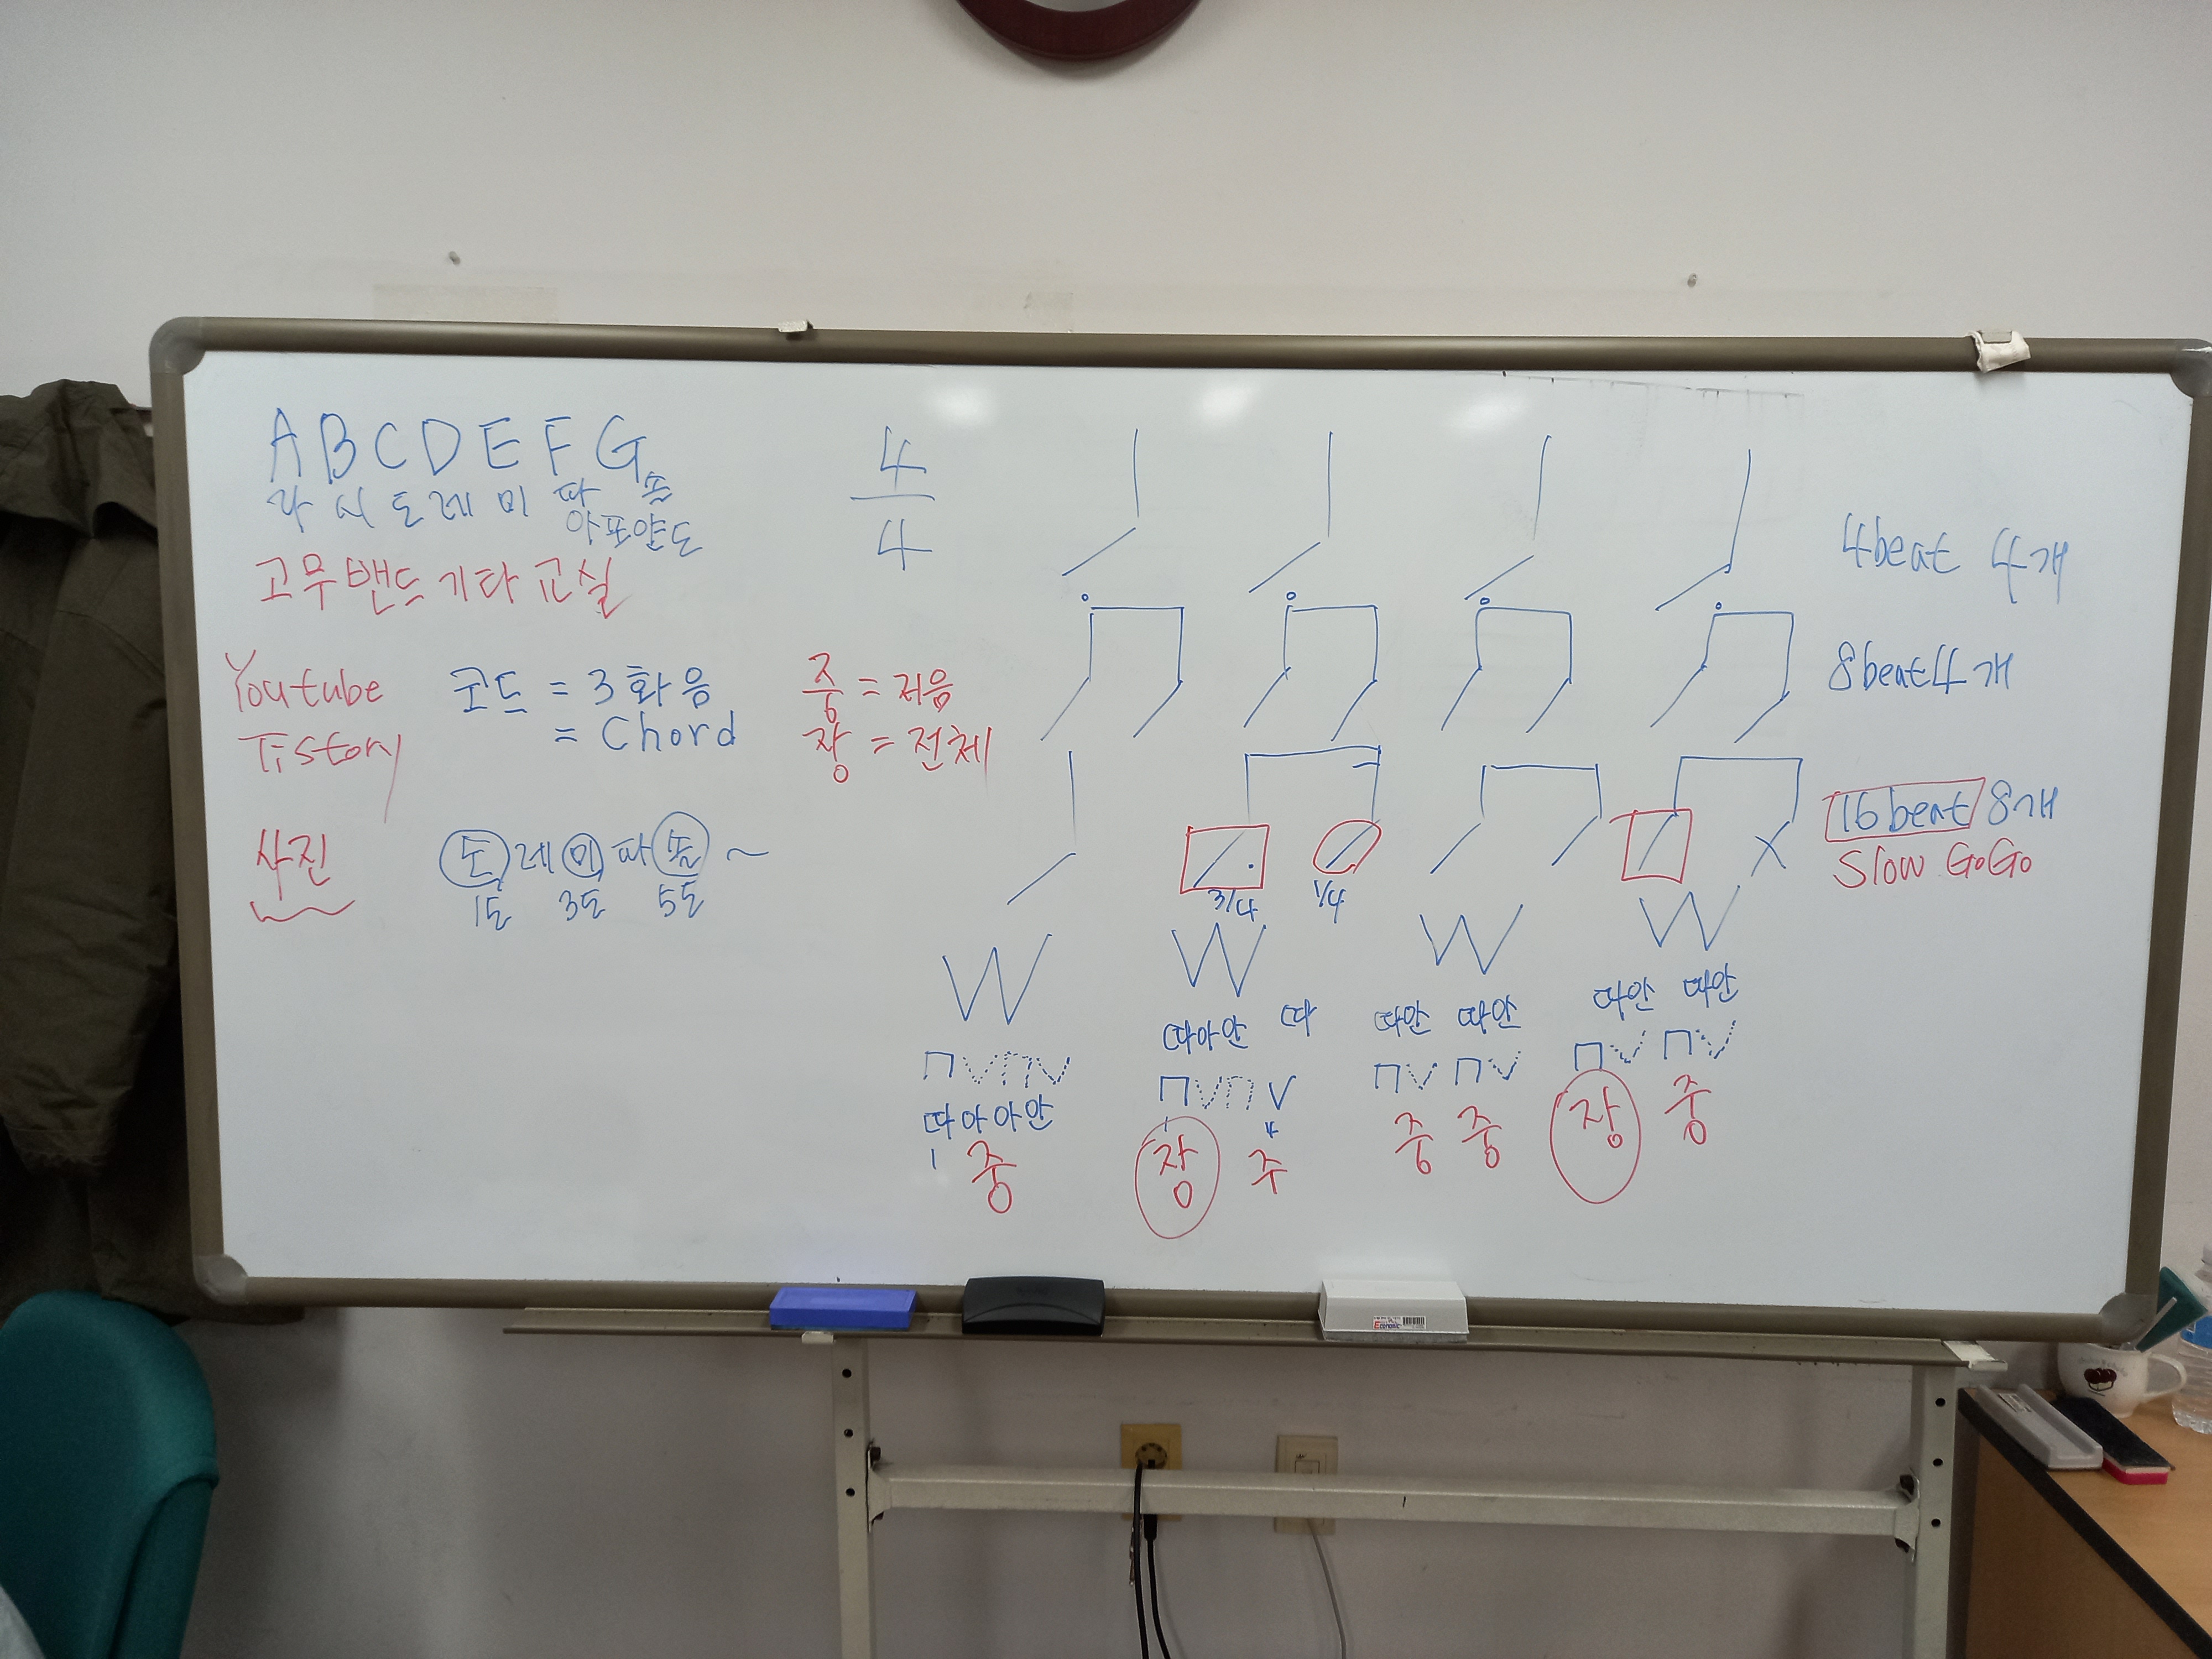 A B C D E F G
라 시 도 레 미 파 솔
고무밴드 기타 교실
Youtube
Tistory
사진
코드 = 3화음
= Chord
도 레 미 파 솔 ~
1도 3도 5도
4
4
중 = 저음
장 = 전체
4beat 4개
8beat 4개
16beat 8개
Slow GoGo
3/4 1/4
따아안 따 따안 따안 따안 따안
따아아안
중 장 주 중 중 장 중